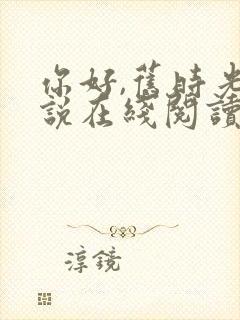 你好,舊時光
說在綫閱讀
淳鏡